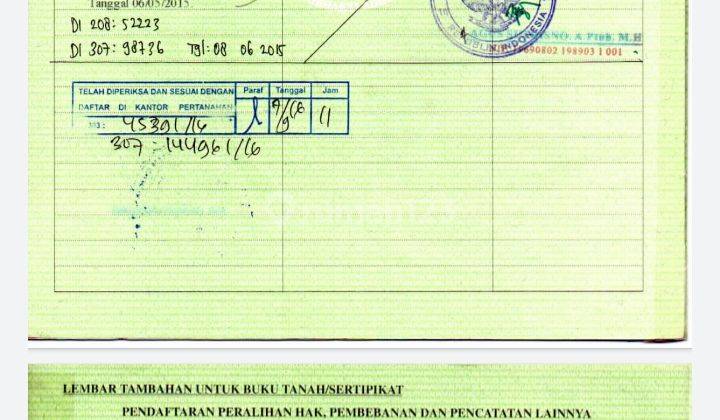 Tanggal 06/05/2015
DI 208: 52223
DI 307: 98736 Tgl: 08 06 2015
INDONESIA
690802 198903 1 001
TELAH DIPERIKSA DAN SESUAI DENGAN Paraf Tanggal Jam
DAFTAR DI KANTOR PERTANAHAN
NO: 45391/16 11
307: 144961/16
LEMBAR TAMBAHAN UNTUK BUKU TANAH/SERTIPIKAT
PENDAFTARAN PERALIHAN HAK, PEMBEBANAN DAN PENCATATAN LAINNYA